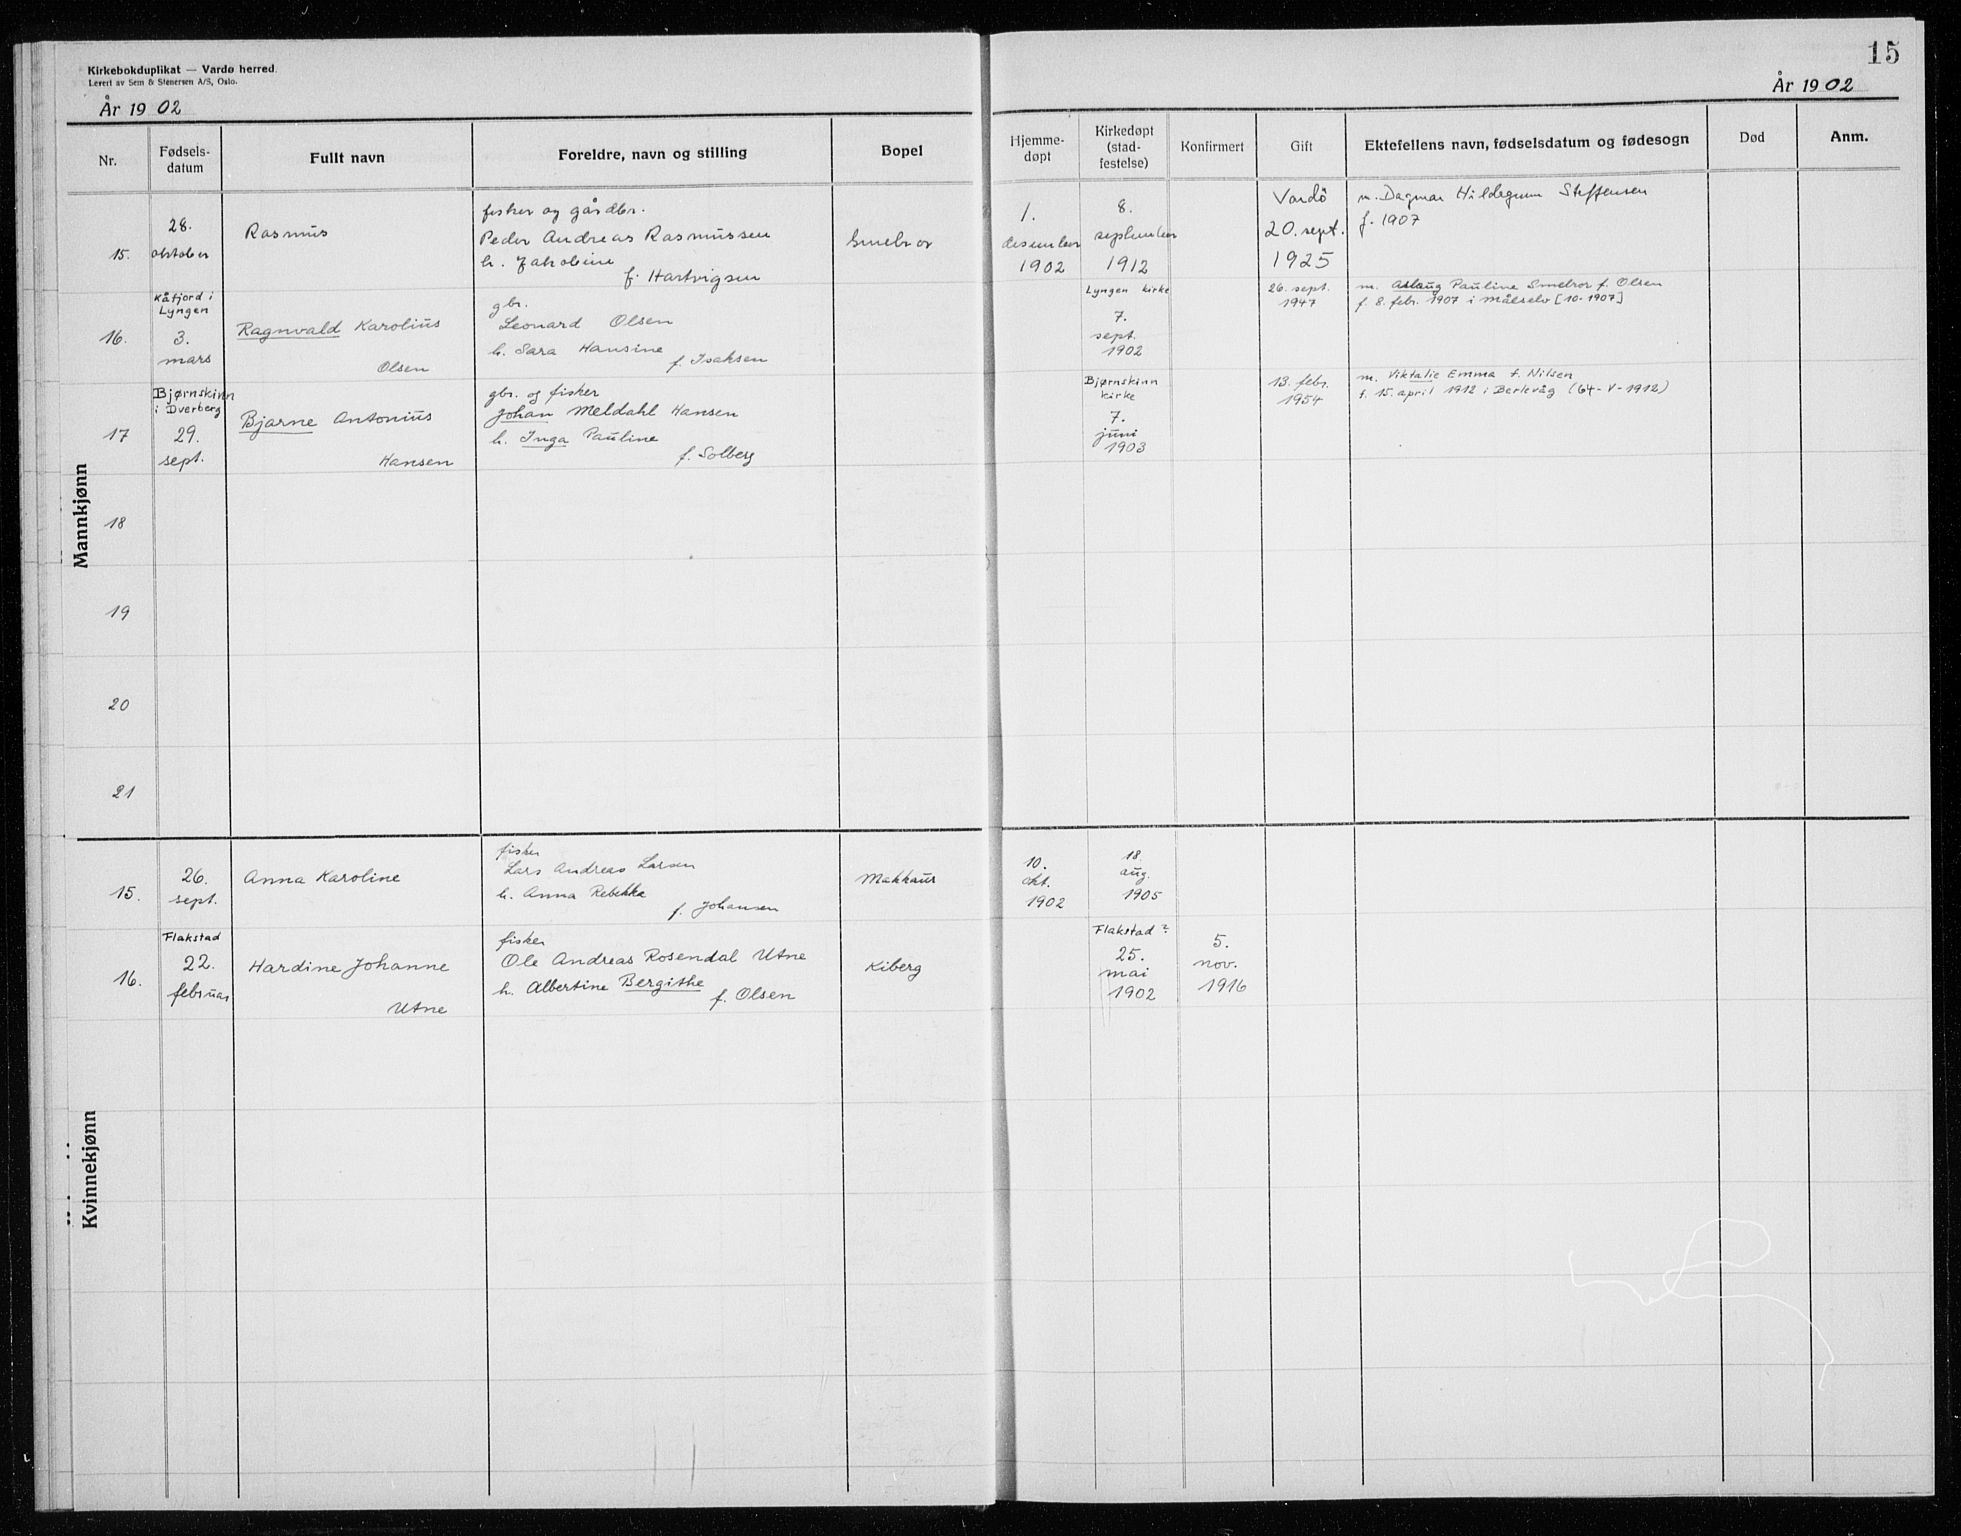 Kirkebokduplikat — Vardø herred.
Levert av Sem & Stenersen A/S, Oslo.
År 1902
15
År 1902
Nr.
Fødsels-
datum
Fullt navn
Foreldre, navn og stilling
Bopel
Hjemme-
døpt
Kirkedøpt
(stad-
festelse)
Konfirmert
Gift
Ektefellens navn, fødselsdatum og fødesogn
Død
Anm.
Mannkjønn
15.
28.
oktober
Rasmus
fisker og gårdbr.
Peder Andreas Rasmussen
h. Jakobine
f. Hartvigsen
Smelror
1.
desember
1902
8.
september
1912
Vardö
20. sept.
1925
m. Dagmar Hildegunn Steffensen
f. 1907
16.
Kåfjord i
Lyngen
3.
mars
Ragnvald Karolius
Olsen
gbr.
Leonard Olsen
h. Sara Hansine
f. Isaksen
Lyngen kirke
7.
sept.
1902
26. sept.
1947
m. Aslaug Pauline Smelror f. Olsen
f. 8. febr. 1907 i Målselv [10-1907]
17
Bjørnskinn
i Dverberg
29.
sept.
Bjarne Antonius
Hansen
gbr. og fisker
Johan Meldahl Hansen
h. Inga Pauline
f. Solberg
Bjørnskinn
kirke
7.
juni
1903
13. febr.
1954
m. Viktalie Emma f. Nilsen
f. 15. april 1912 i Berlevåg (64-V-1912)
18
19
20
21
Kvinnekjønn
15.
26.
sept.
Anna Karoline
fisker
Lars Andreas Larsen
h. Anna Rebekka
f. Johansen
Makkaur
10.
okt.
1902
18.
aug.
1905
16.
Flakstad
22.
februar
Hardine Johanne
Utne
fisker
Ole Andreas Rosendal Utne
h. Albertine Bergithe
f. Olsen
Kiberg
Flakstad ?
25.
mai
1902
5.
nov.
1916